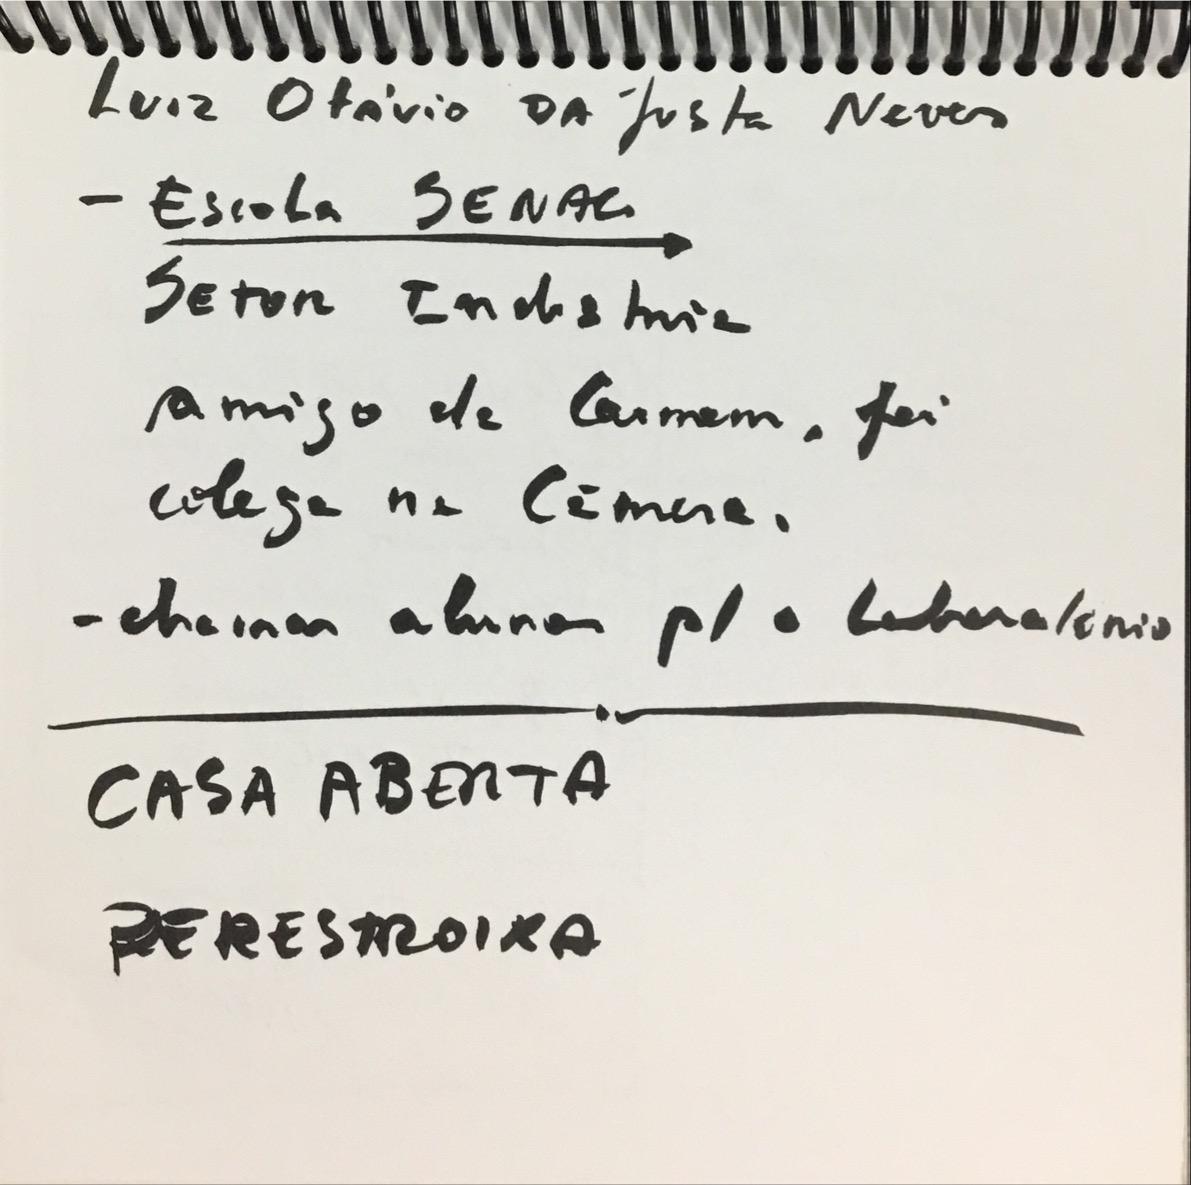 Luiz Otávio DA Justa Neves
- Escola SENAC
Setor Indústria
amigo de Carmem, foi
colega na Câmara.
- chamar alunos p/ o Laboratório
CASA ABERTA
PERESTROIKA